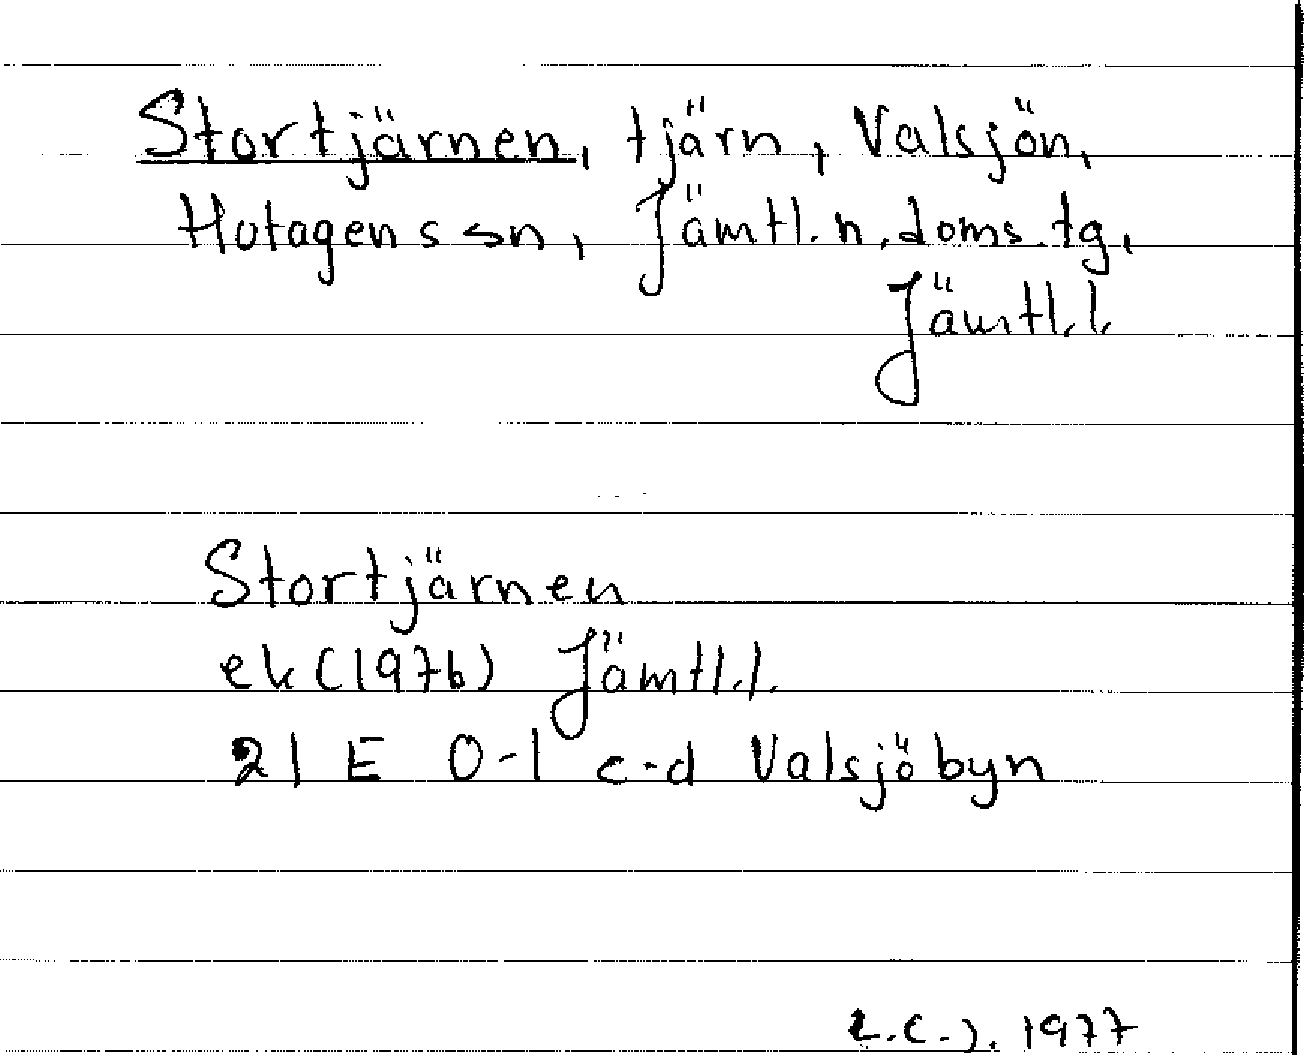 Stortjärnen, tjärn, Valsjön,
Hotagens sn, Jämtl. n. doms. tg,
Jämtl. l.
Stortjärnen
ek (1976) Jämtl. l.
21 E 0-1 c-d Valsjöbyn
1977